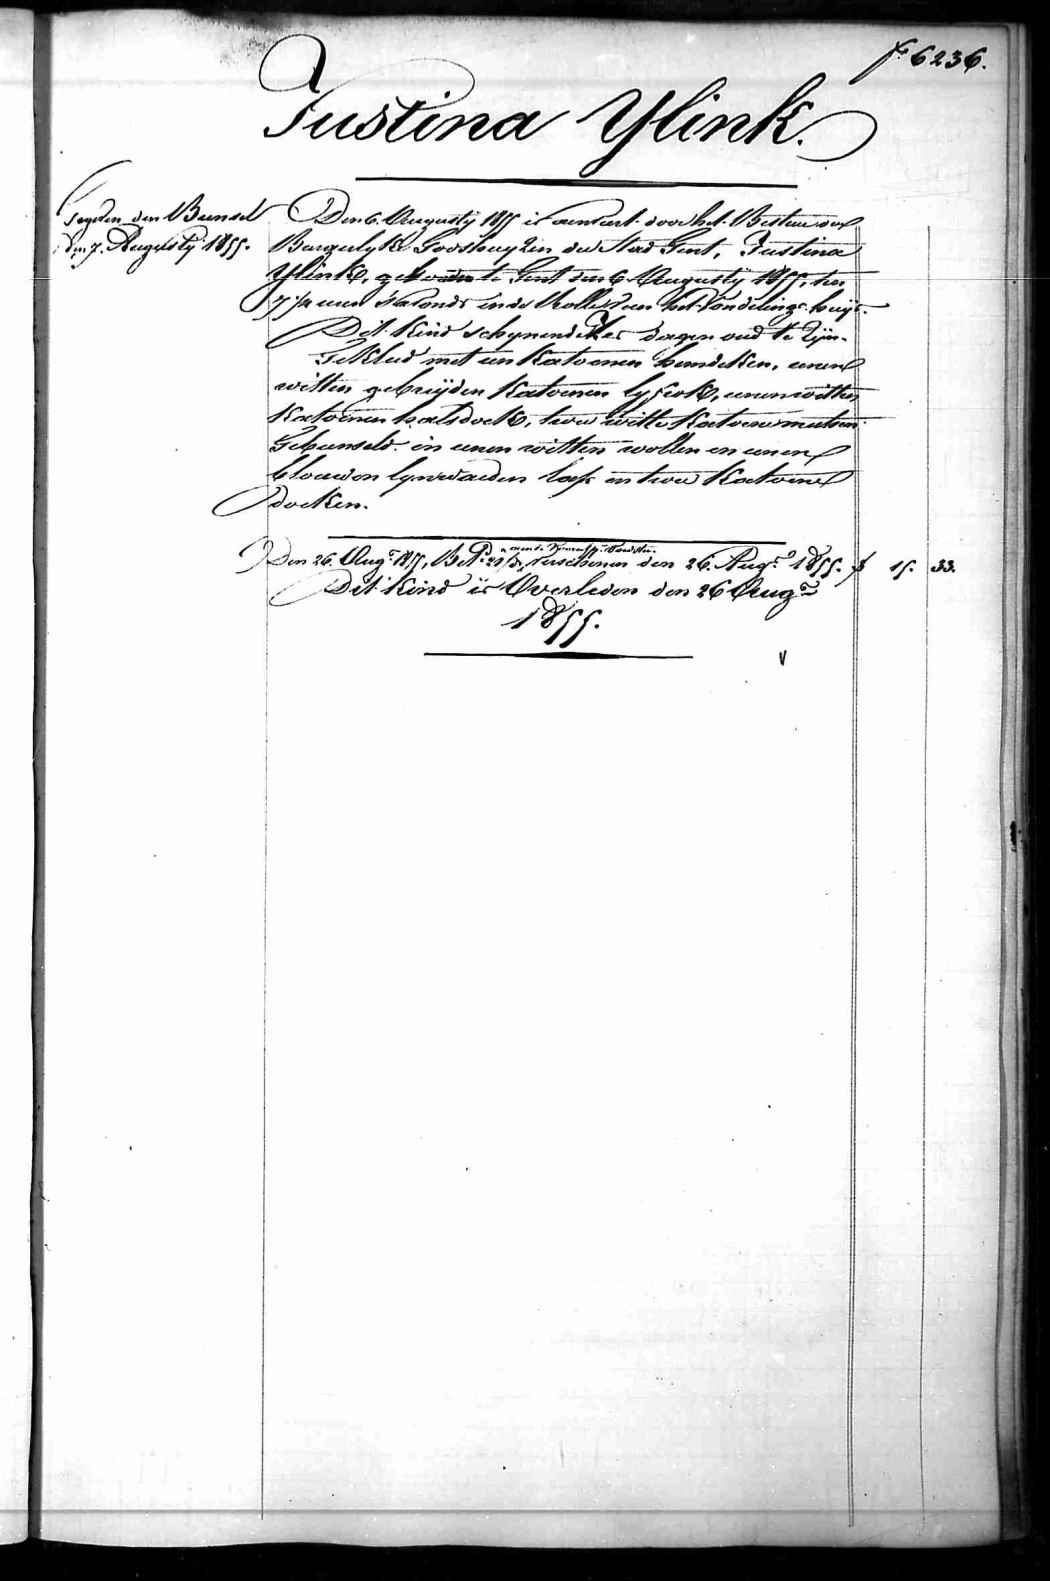 f° 6236.
Justina Ylink.
den Bunsel
den 7. Augusty 1855.
Den 6. Augusty 1855 is aenveert door het Bestuer der
Burgerlyke Godshuyzen der Stad Gent, Justina
Ylink, gevonden te Gent den 6 Augusty 1855, ten
7 1/2 uren s'avonds in de Rolle van het Vondelingshuys.
Dit Kind schynende dagen oud te zyn.
Gekleed met een Katoenen hemdeken, eenen
witten gebreyden Katoenen lyfrok, eenen witten
Katoenen halsdoek, twee witte Katoene mutsen
Gebunseld in eenen witten wollen en eenen
blauwen lynwaeden lap en twee Katoene
doeken.
Den 26. Aug. 1855, Bet. verschenen den 26. Aug. 1855. f 15. 33.
Dit Kind is Overleden den 26 Aug.
1855.